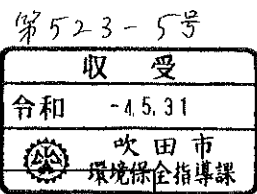 第523-5号
収受
令和 -4.5.31
吹田市
環境保全指導課